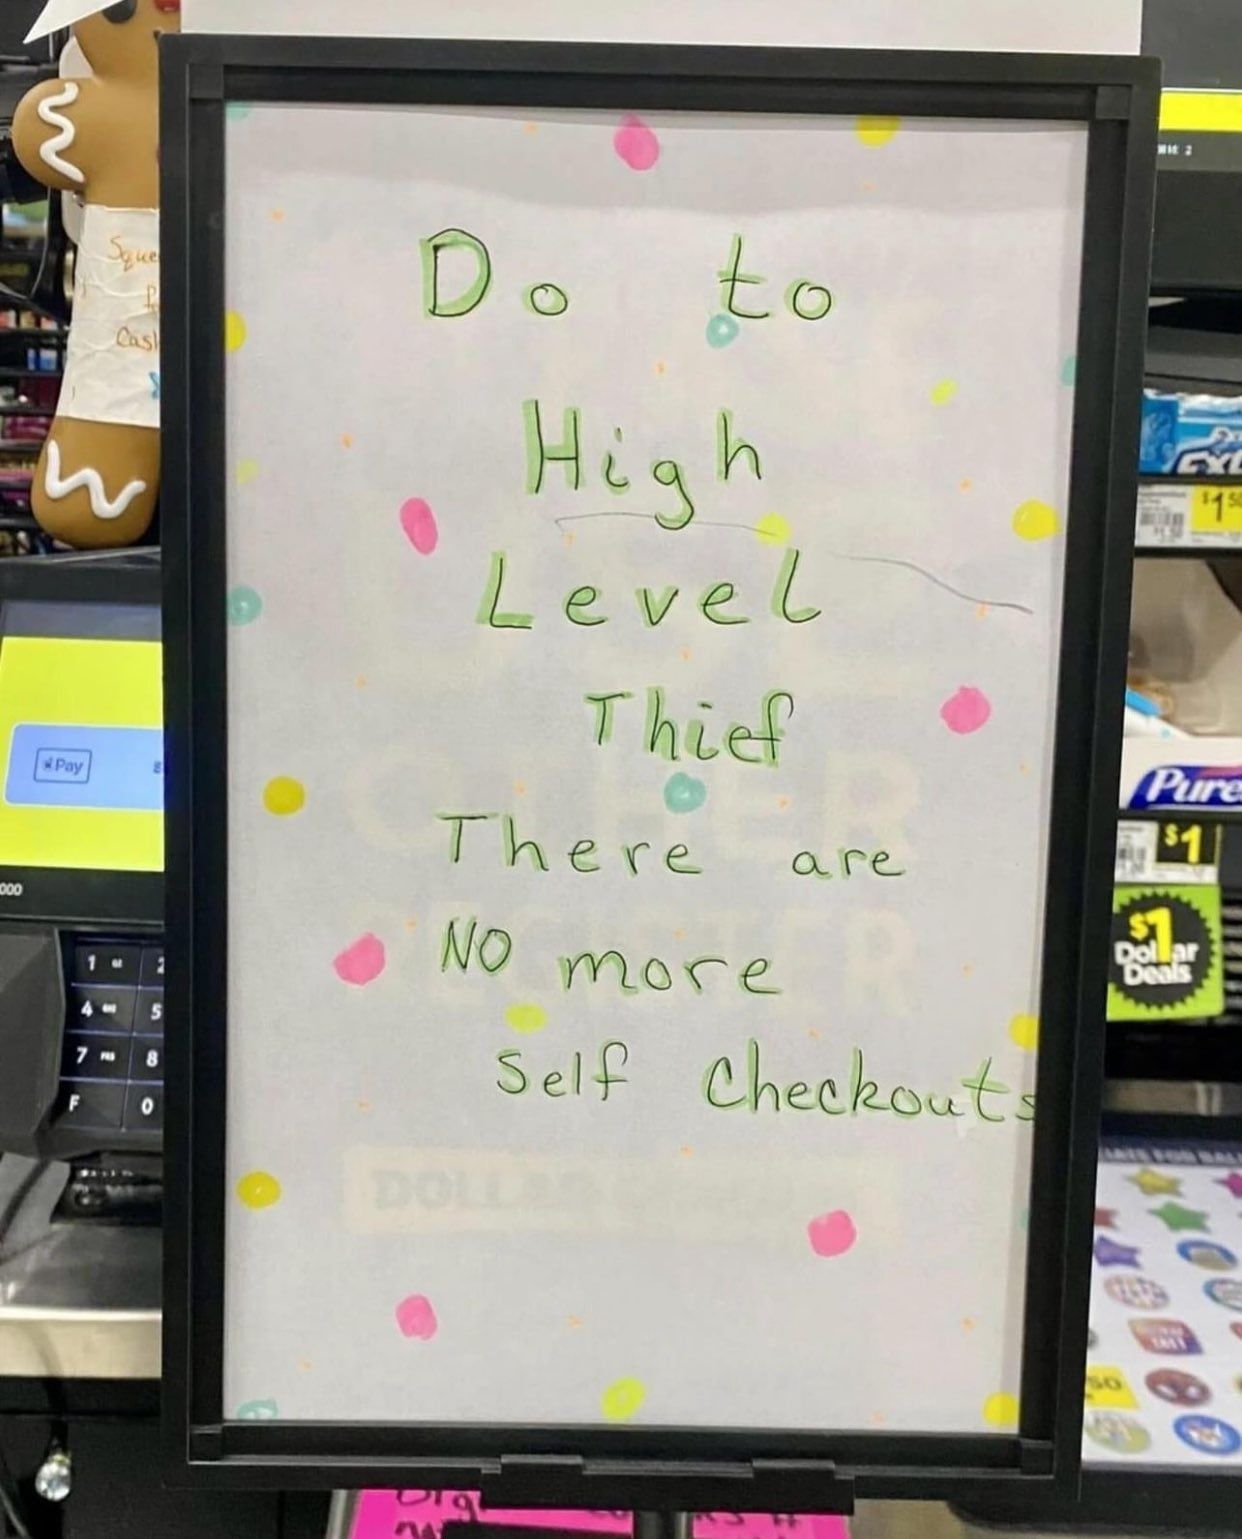 Do to
High
Level
Thief
There are
NO more
Self Checkouts
OTHER
REGISTER
DOLLAR
Sque
Cash
Pay
000
1
2
4
5
7
8
F
0
$1 50
Pure
$1
$1
Dollar
Deals